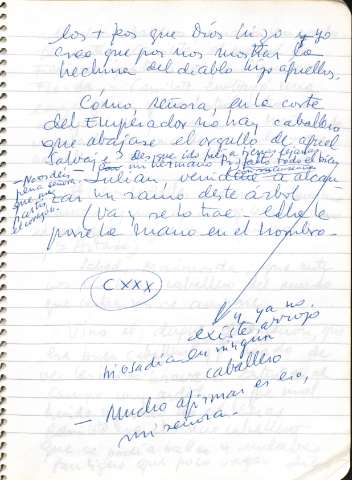 los + feos que Dios hizo y yo
creo que por nos mostrar la
hechura del diablo hizo aquellos.
Cómo, señora, en la corte
del Emperador no hay caballero
que abajase el orgullo de aquel
salvaje?
mi hermano
todo el bien
- No os deis
pena señora
que me
el corazón.
- Julián, venid a alcan-
zar un ramo deste árbol
(Va y se lo trae - Ella le
pone la mano en el hombro -
CXXX
y ya no
existe arrojo
ni osadía en ningún
caballero
- Mucho afirmar es eso,
mi señora -